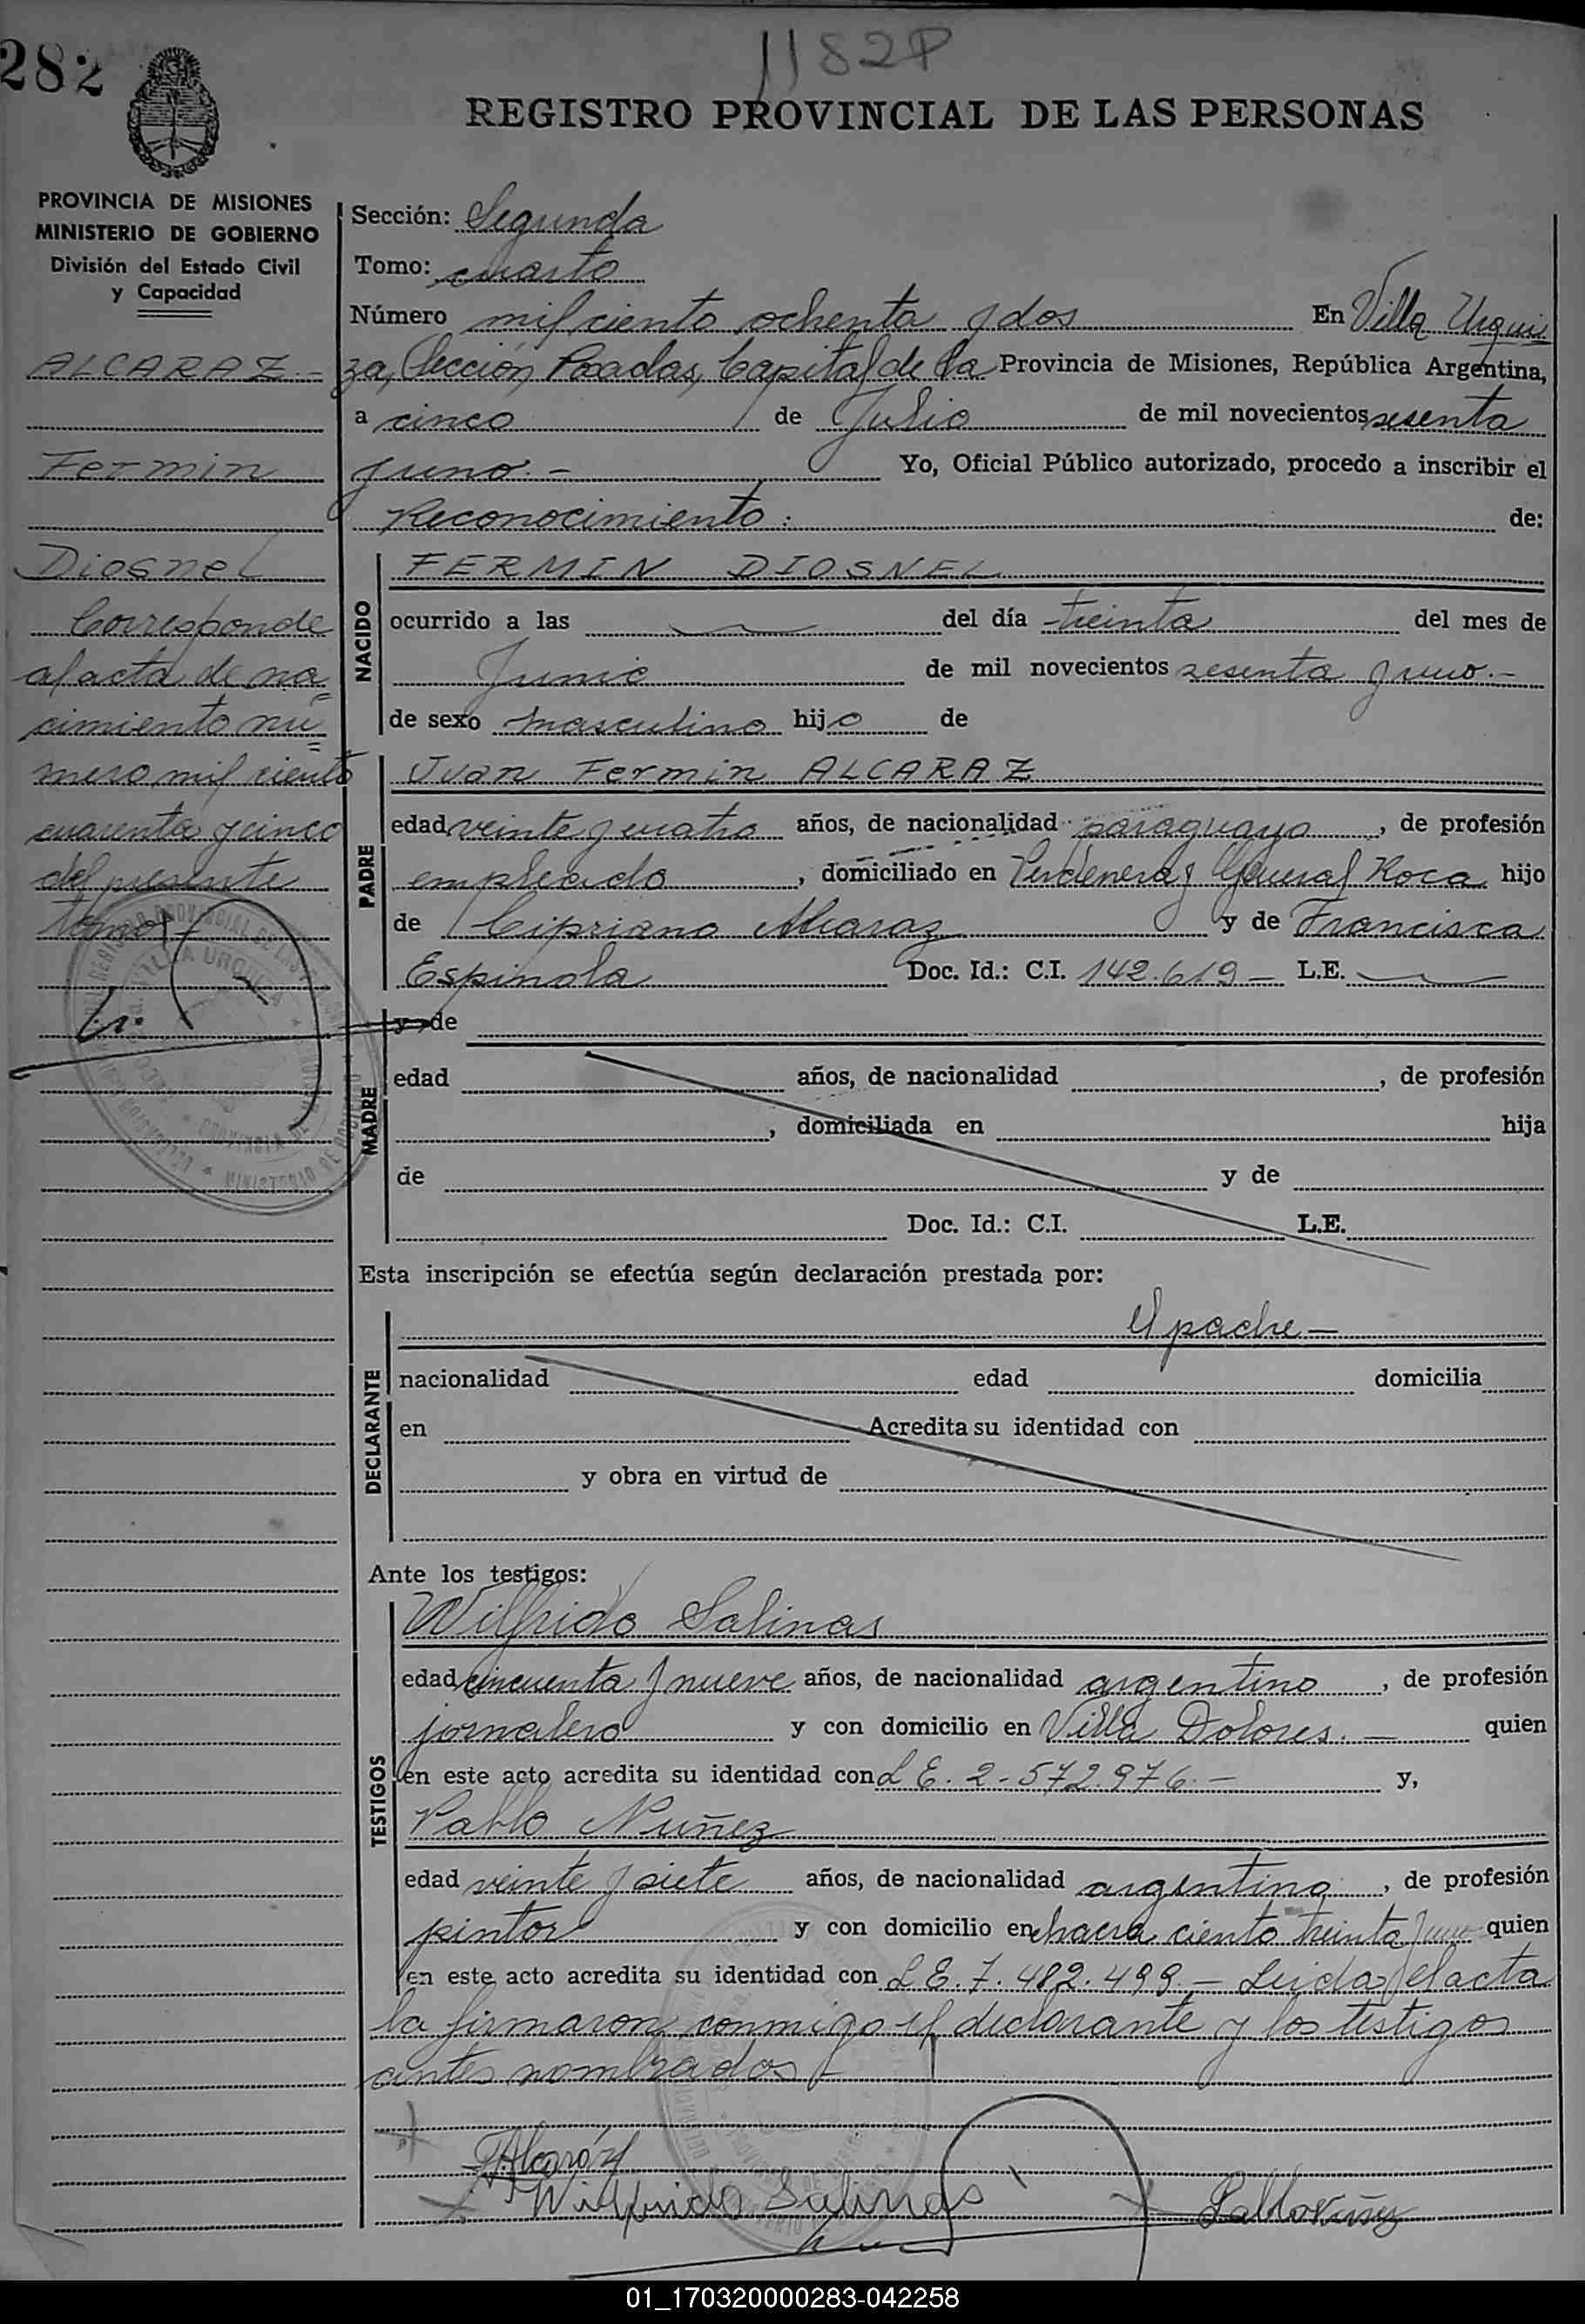 282
1182P
REGISTRO PROVINCIAL DE LAS PERSONAS
PROVINCIA DE MISIONES
MINISTERIO DE GOBIERNO
División del Estado Civil
y Capacidad
ALCARAZ.-
Fermin
Diosnel
Corresponde
al acta de na=
cimiento nú=
mero mil ciento
cuarenta y cinco
del presente
tomo.-
Sección: Segunda
Tomo: cuarto
Número mil ciento ochenta y dos En Villa Urqui
za, Sección Posadas, Capital de la Provincia de Misiones, República Argentina,
a cinco de Julio de mil novecientos sesenta
y uno.- Yo, Oficial Público autorizado, procedo a inscribir el
Reconocimiento: de:
NACIDO
FERMIN DIOSNEL
ocurrido a las del día treinta del mes de
Junio de mil novecientos sesenta y uno.-
de sexo masculino hijo de
PADRE
Juan Fermin ALCARAZ
edad veinte y cuatro años, de nacionalidad paraguayo, de profesión
empleado, domiciliado en y General Roca hijo
de Cipriano Alcaraz y de Francisca
Espinola Doc. Id.: C.I. 142.619 - L.E.
MADRE
y de
edad años, de nacionalidad , de profesión
, domiciliada en hija
de y de
Doc. Id.: C.I. L.E.
Esta inscripción se efectúa según declaración prestada por:
DECLARANTE
El padre -
nacionalidad edad domicilia
en Acredita su identidad con
y obra en virtud de
Ante los testigos:
TESTIGOS
Wilfrido Salinas
edad cincuenta y nueve años, de nacionalidad argentino, de profesión
jornalero y con domicilio en Villa Dolores. - quien
en este acto acredita su identidad con L E. 2-572.976.- y,
Pablo Nuñez
edad veinte y siete años, de nacionalidad argentino, de profesión
pintor y con domicilio en chacra ciento treinta y uno quien
en este acto acredita su identidad con L E. 7.482.499.- Leida el acta
la firmaron conmigo el declarante y los testigos
antes nombrados.-
Alcaráz
Wilfrido Salinas
Pablo Nuñez
01_170320000283-042258